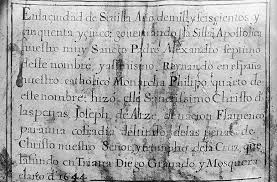 En la ciudad de Seuilla Año de mil y seiscientos y
cinquenta y cinco; gouernando la Silla Apostolica
nuestro muy Sancto Padre Alexandro septimo
deste nombre, y assimismo, Reynando en españa
nuestro catholico Monarcha Philipo quarto de
este nombre: hizo, este Sanctissimo Christo de
las penas, Joseph, de Arze, de nacion Flamenco
para una cofradia del titulo de las penas de
Christo nuestro Señor, y triumpho de la Cruz, que
la fundo en Triana Diego Granado y Mosquera
1644